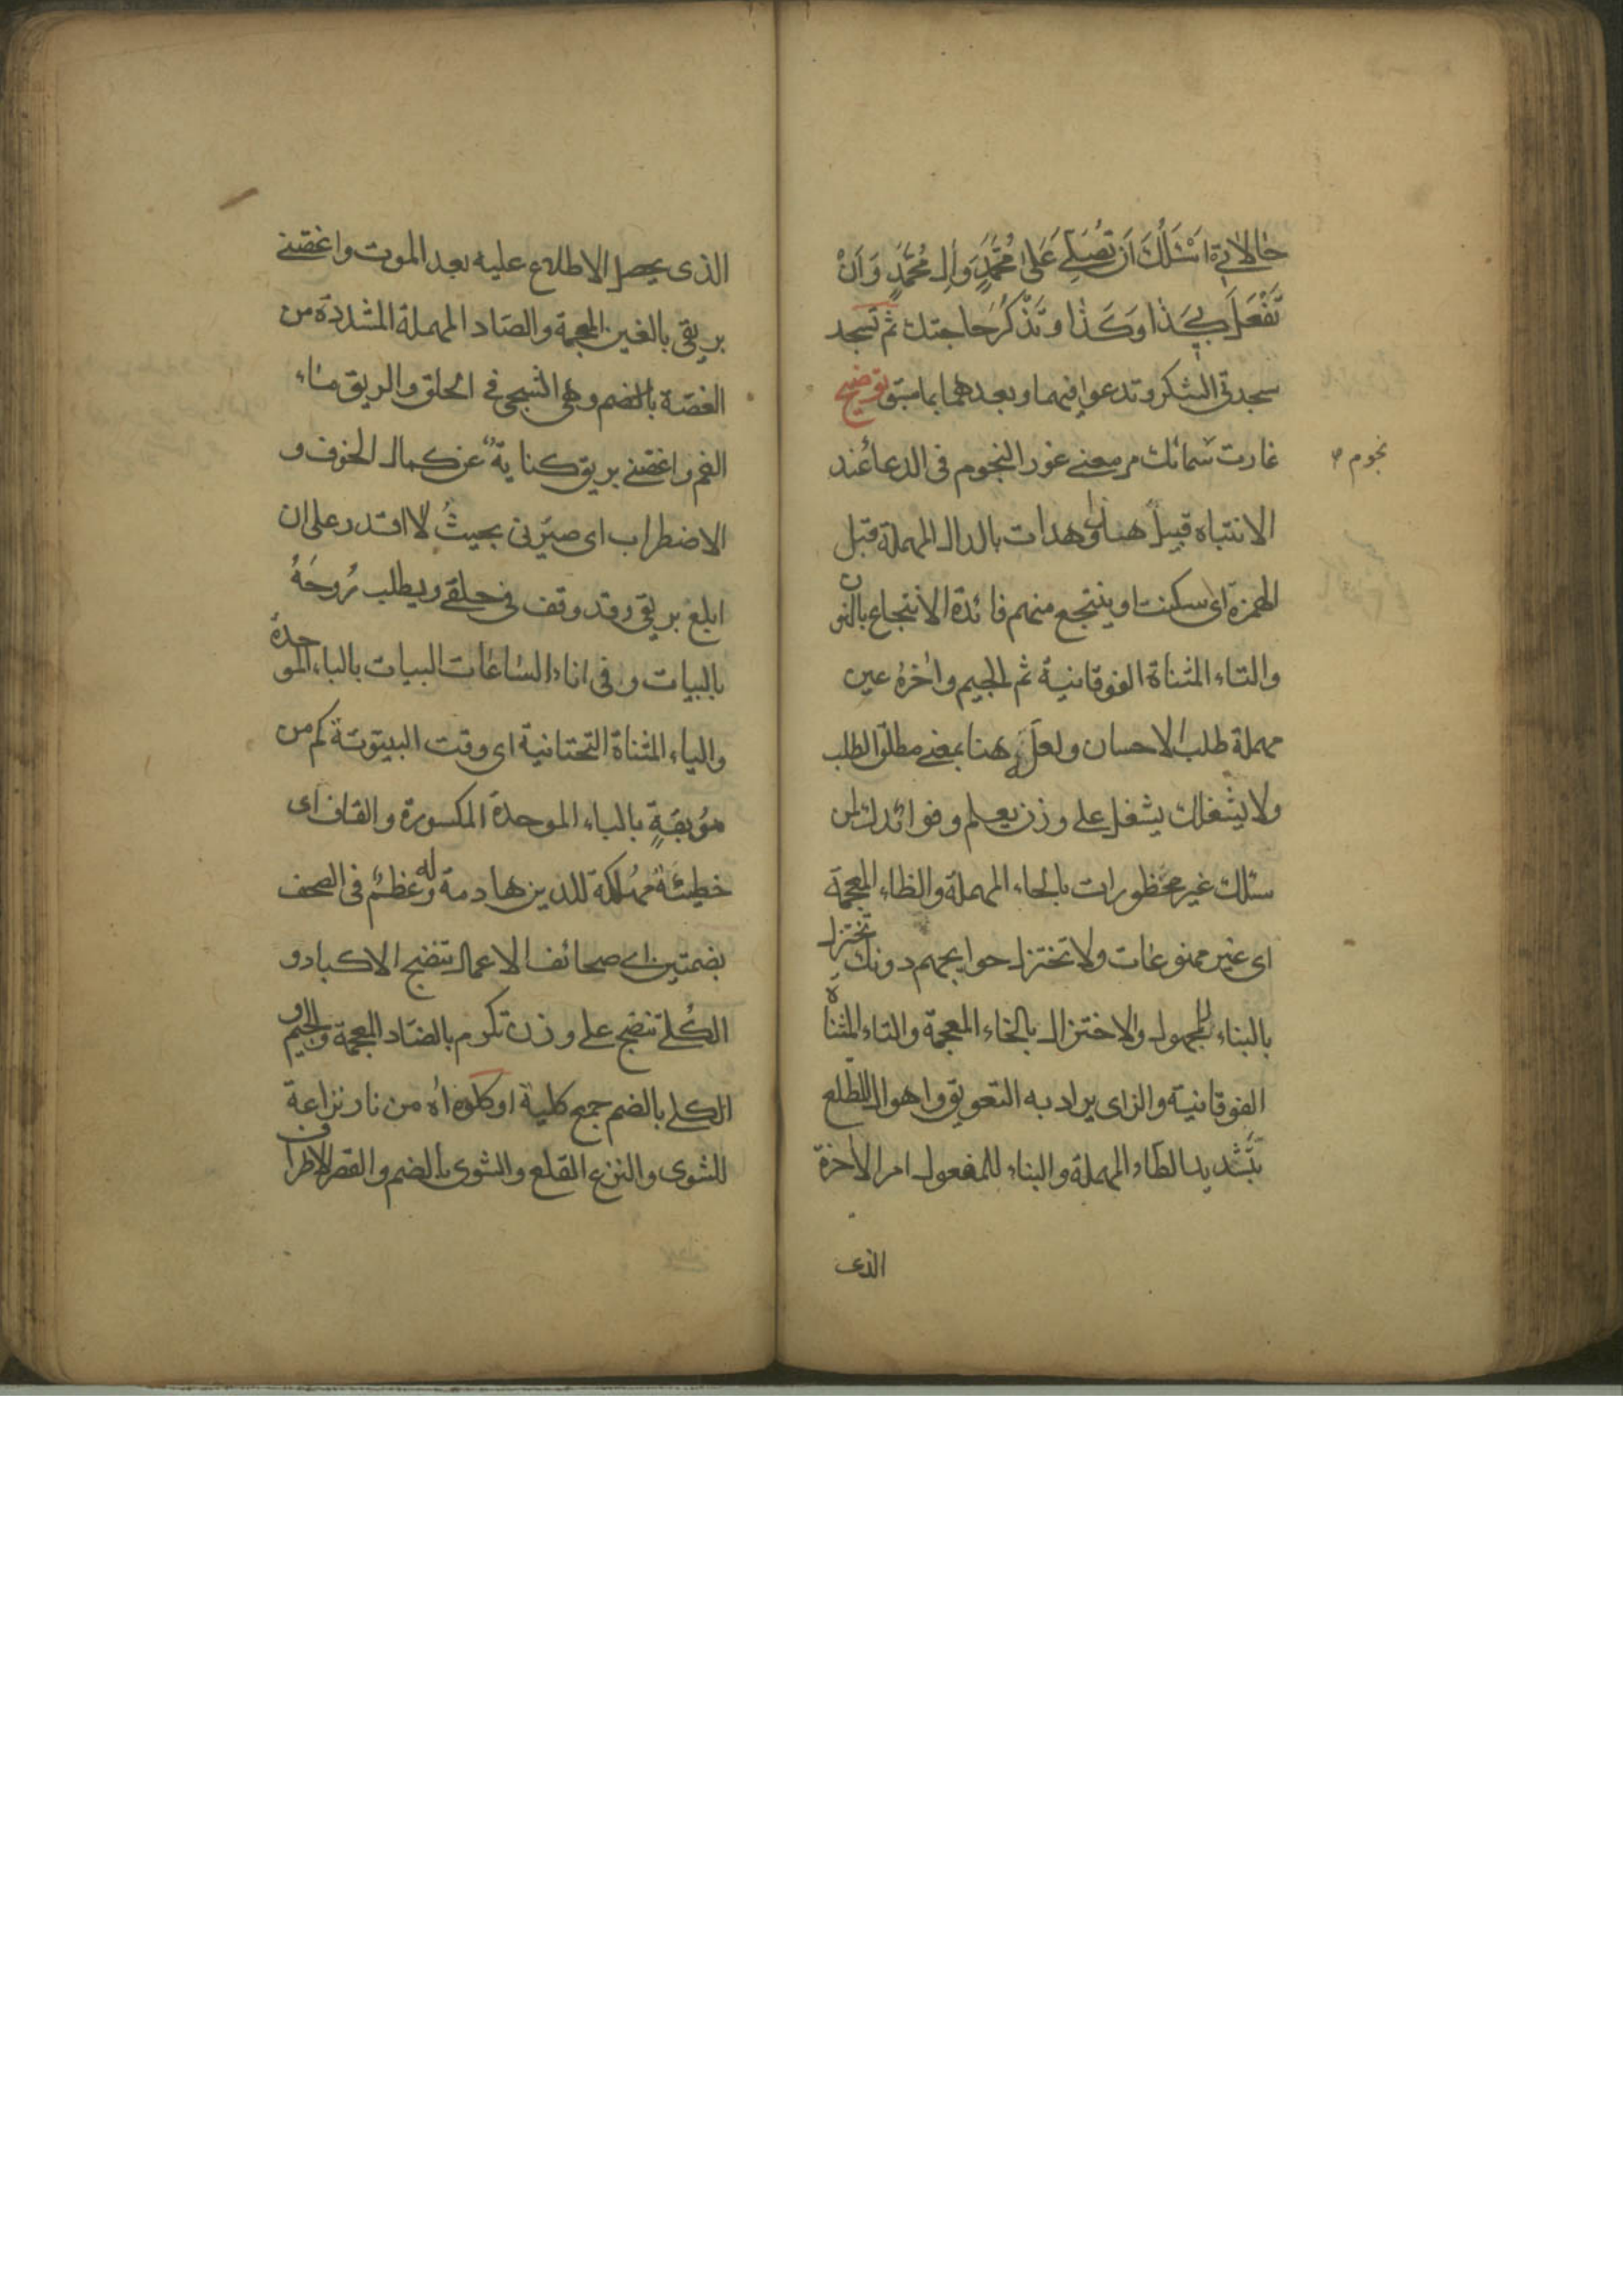 حالاتى اَسْئَلُكَ اَنْ تُصَلِّىَ عَلىٰ مُحَمَّدٍ وَالِ مُحَمَّدٍ وَاَنْ
تَفْعَلَ بى كَذا وَكَذا وتَذْكُرُ حاجتك ثم تسجد
سجدتى الشكر وتدعوا فيهما وبعدهما بما سبق توضيح
غارت نجوم سمائك مر معنى غور النجوم فى الدعاء عند
الانتباه قبيل هذا وهدات بالدال المهملة قبل
الهمزة اى سكنت او ينتجع منهم فائدة الانتجاع بالنون
والتاء المثناة الفوقانية ثم الجيم واخرهُ عين
مهملة طلب الاحسان ولعلّه هنا بمعنى مطلق الطلب
ولا يشغلك يشغل على وزن يعلم وفوائدك لمن
سئلك غير محظورات بالحاء المهملة والظاء المعجمة
اى غير ممنوعات ولا تختزل حوايجهم دونك تختزل
بالبناء للمجهول والاختزال بالخاء المعجمة والتاء المثناة
الفوقانية والزاى يراد به التعويق واهوال المطّلع
بتشديد الطاء المهملة والبناء للمفعول امر الاخرة
الذى
الذى يحصل الاطلاع عليه بعد الموت واغصنى
بريقى بالغين المعجمة والصاد المهملة المشددة من
الغصة بالضم وهى الشجى فى الحلق والريق ماء
الفم واغصنى بريقى كناية عن كمال الخوف و
الاضطراب اى صيّرنى بحيثُ لا اقتدر على ان
ابلع بريقى وقد وقف فى حلقى ويطلب رُوحَهُ
بالبيات وفى اناء الساعات البيات بالباء الموحدة
والياء المثناة التحتانية اى وقت البيتوتة كم من
موُبقةٍ بالباء الموحدة المكسورة والقاف اى
خطيئة مهُلكة للدين هادمة له وعظُم فى الصحف
بضمتين اى صحائف الاعمال تنضج الاكباد و
الكُلى تنضج على وزن تكرم بالضاد المعجمة والجيم و
الكلى بالضم جمع كلية او كلوة اه من نار نزاعة
للشوى والنزع القلع والشوى بالضم والقصر الاطراف